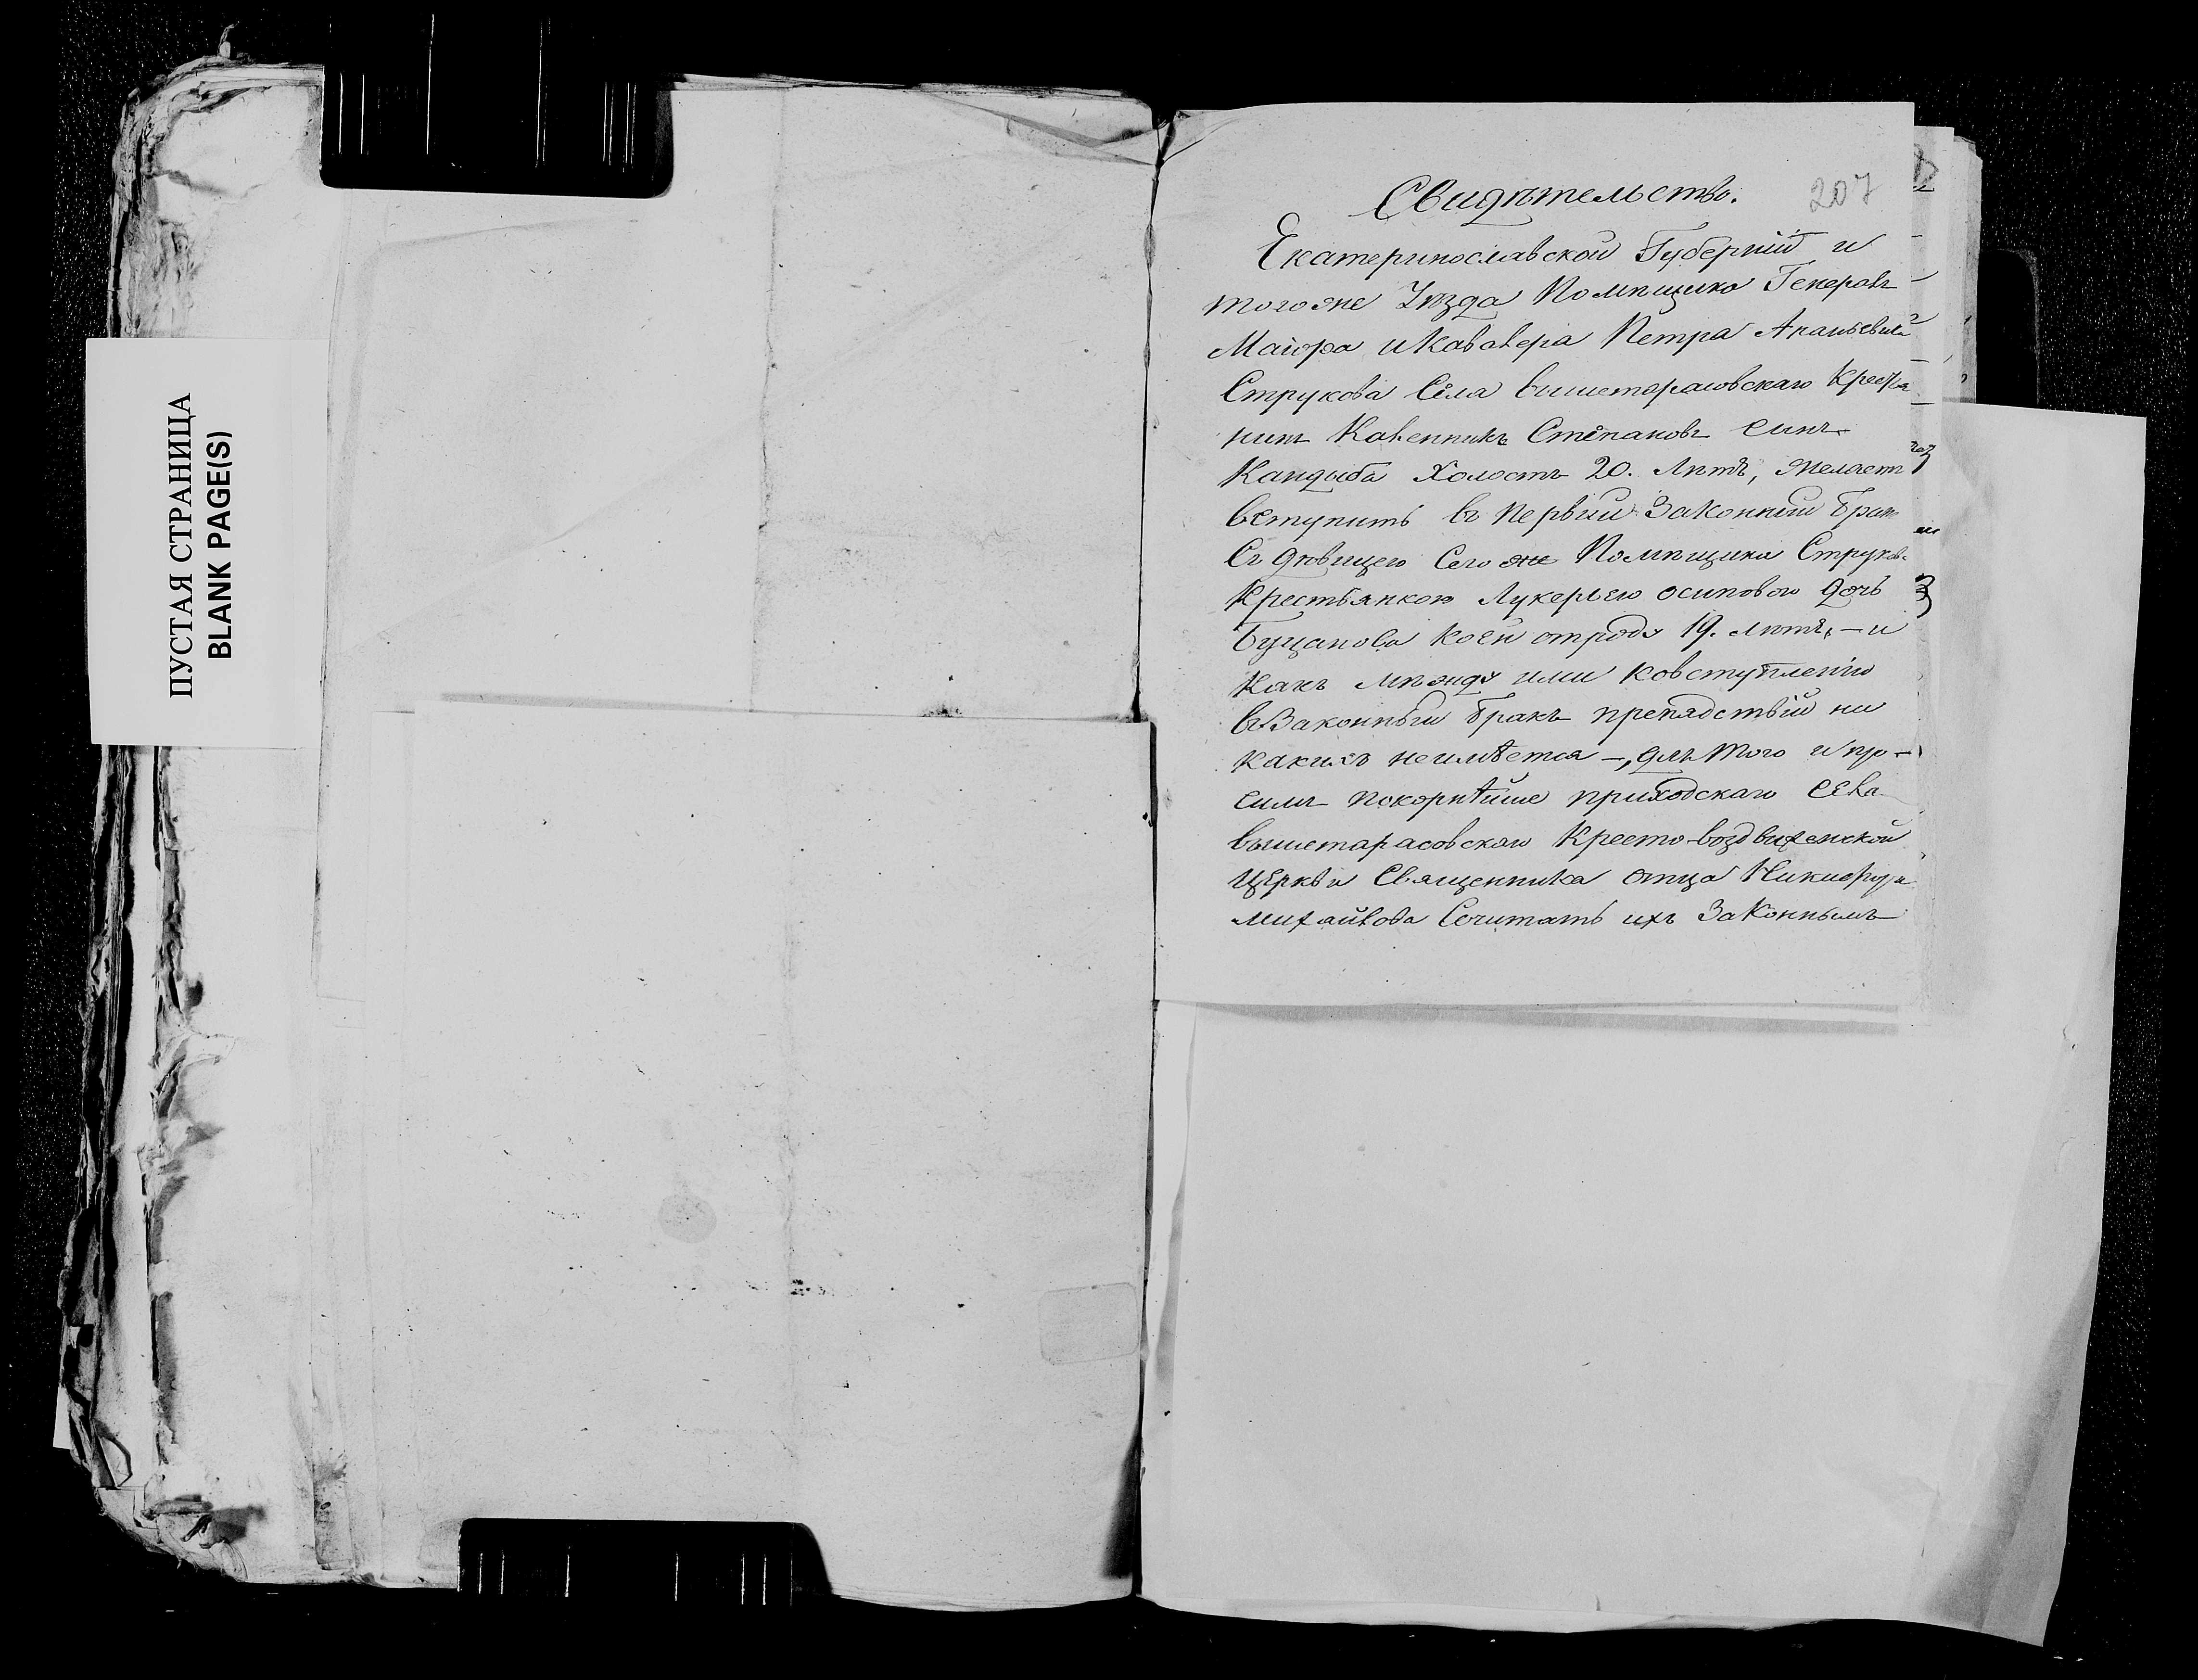 ПУСТАЯ СТРАНИЦА
BLANK PAGE(S)
207
Свидѣтельство.
Екатеринославской Губерній и
тогоже Уѣзда Помѣщика Генералъ
Маіора и Кавалера Петра Ананьевича
Струкова Села вышетарасовскаго Крестья
нинъ Каленникъ Степановъ синъ
Кандыба Холостъ 20. Лѣтъ, желаетъ
вступить въ первий Законний бракъ
Съ дѣвицею Сегоже Помѣщика Струкова
Крестьянкою Лукерьею осиповою дочь
Буцанова коей отроду 19. лѣтъ, — и
Какъ мѣжду ими ковступленію
въ Законный бракъ препядствій ни
какихъ неимѣется —, для того и про-
симъ покорнѣйше приходскаго Села
вышетарасовскаго Кресто-воздвиженской
Церкви Священника отца Никифора
Михайлова Сочитать ихъ Законнымъ